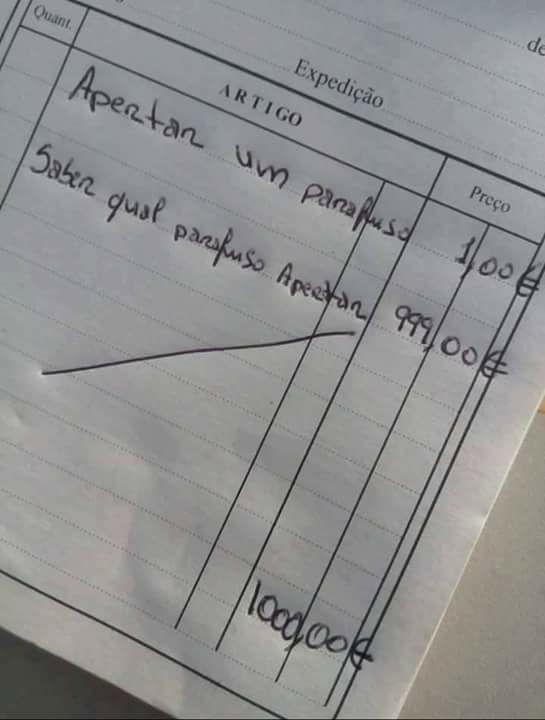 de
Expedição
Quant. ARTIGO Preço
Apertar um parafuso 1,00€
Saber qual parafuso Apertar 999,00€
1000,00€